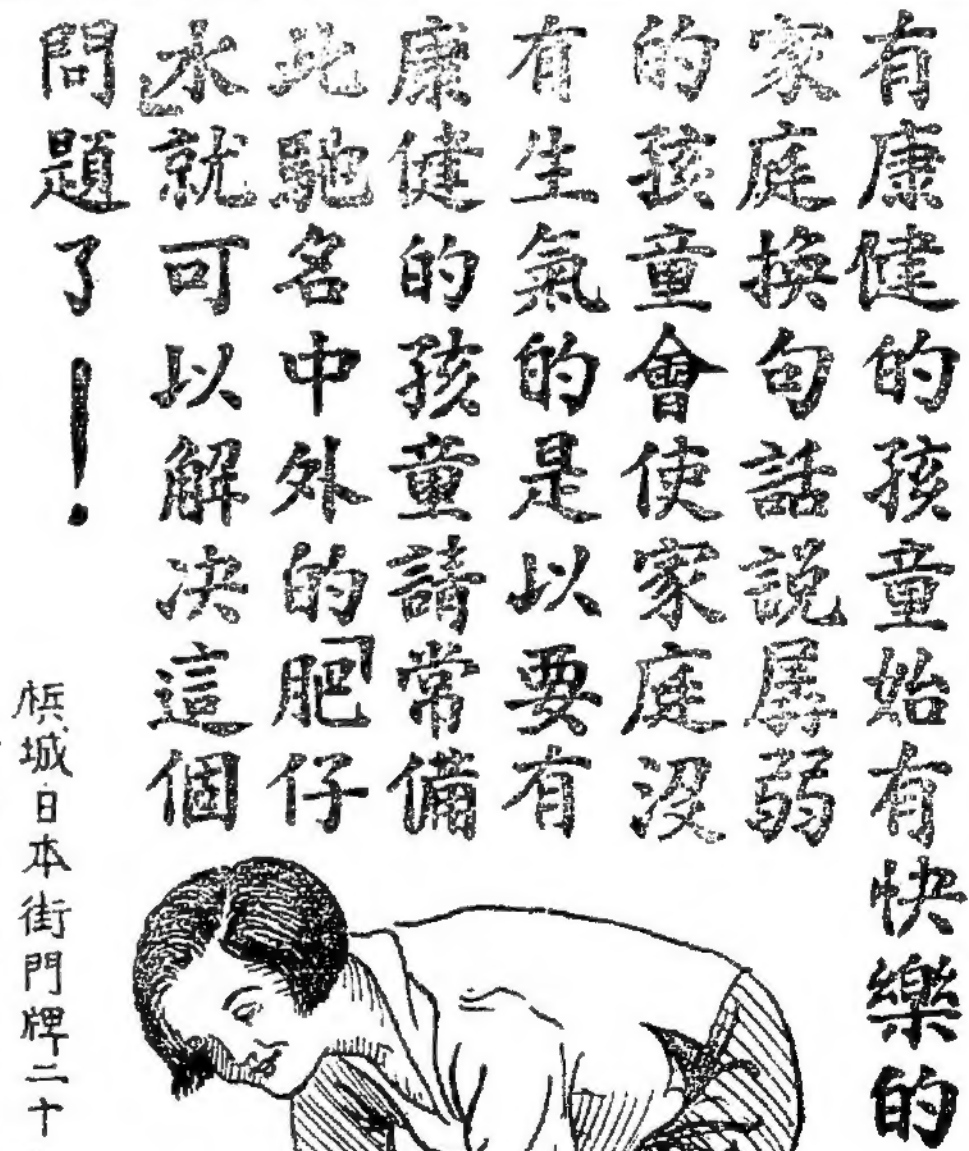 有康健的孩童始有快樂的
家庭換句話說孱弱
的孩童會使家庭沒
有生氣的是以要有
康健的孩童請常備
此馳名中外的「肥仔
水」就可以解决這個
問題了！
檳城·日本街門牌二十